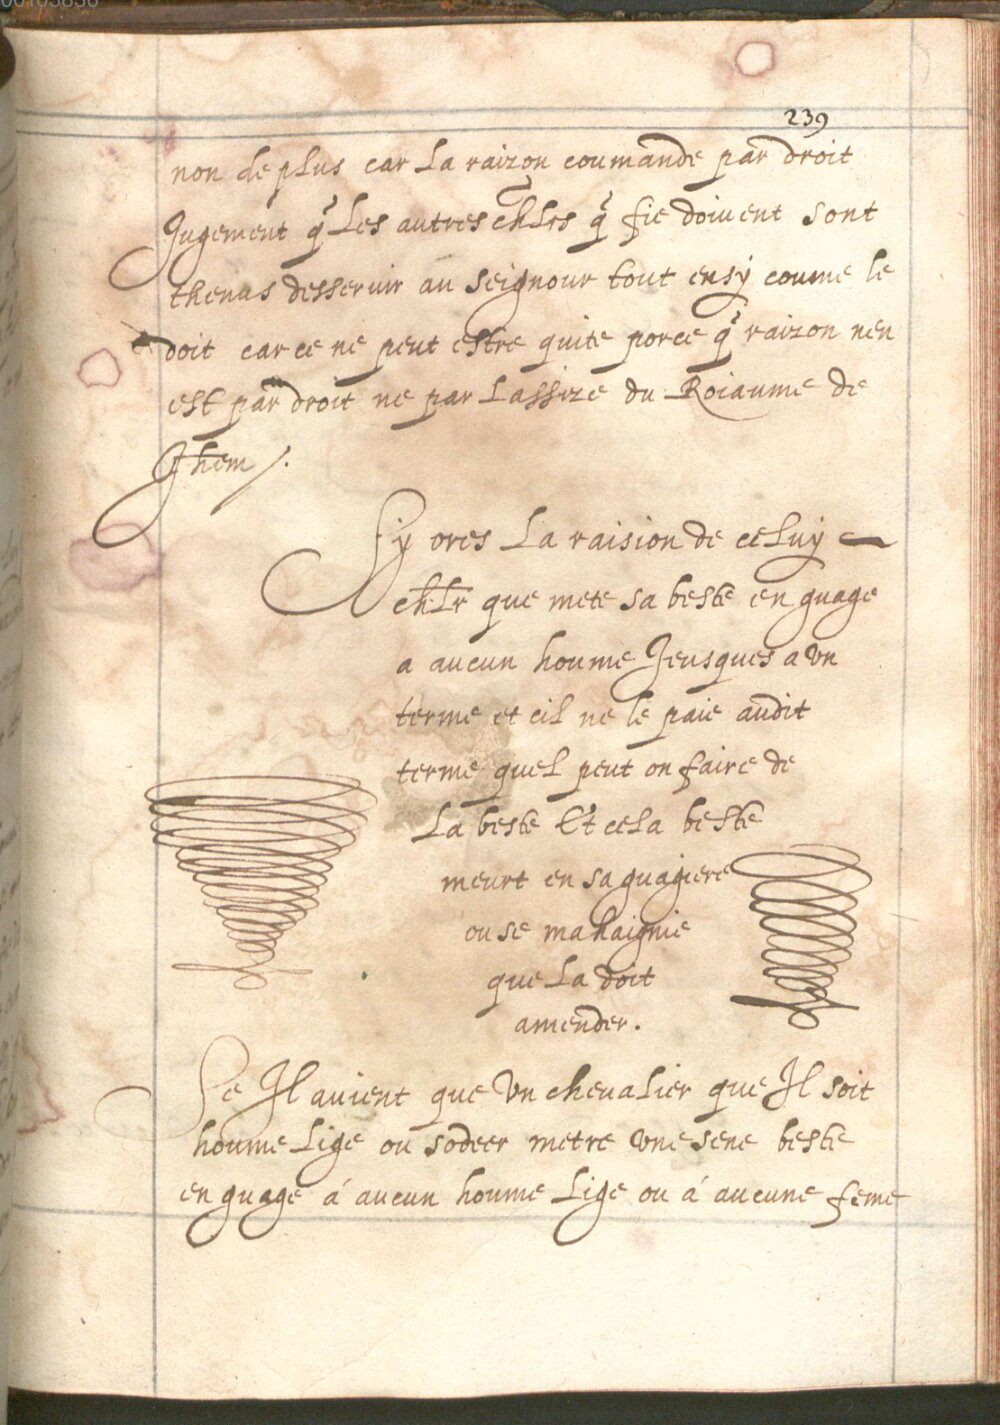 239
non de plus car La raizon coumande par droit
Jugement q̃ Les autres chl̃rs q̃ fie doiuent sont
thenus desseruir au seignour tout ensy coume le
doit car ce ne peut estre quite porce q̃ raizon nen
est par droit ne par Lassize du Roiaume de
Jhem /.
Sy ores La raision de celuy
chl̃r que mete sa beste en guage
a aucun houme Jeusques a vn
terme et cil ne le paie audit
terme quel peut on faire de
La beste Et ce la beste
meurt en sa guagiere
ou se mahaignie
que La doit
amender.
Se Il auient que Vn chevalier que Il soit
houme Lige ou sodeer metre vne sene beste
en guage á aucun houme Lige ou á aucune feme